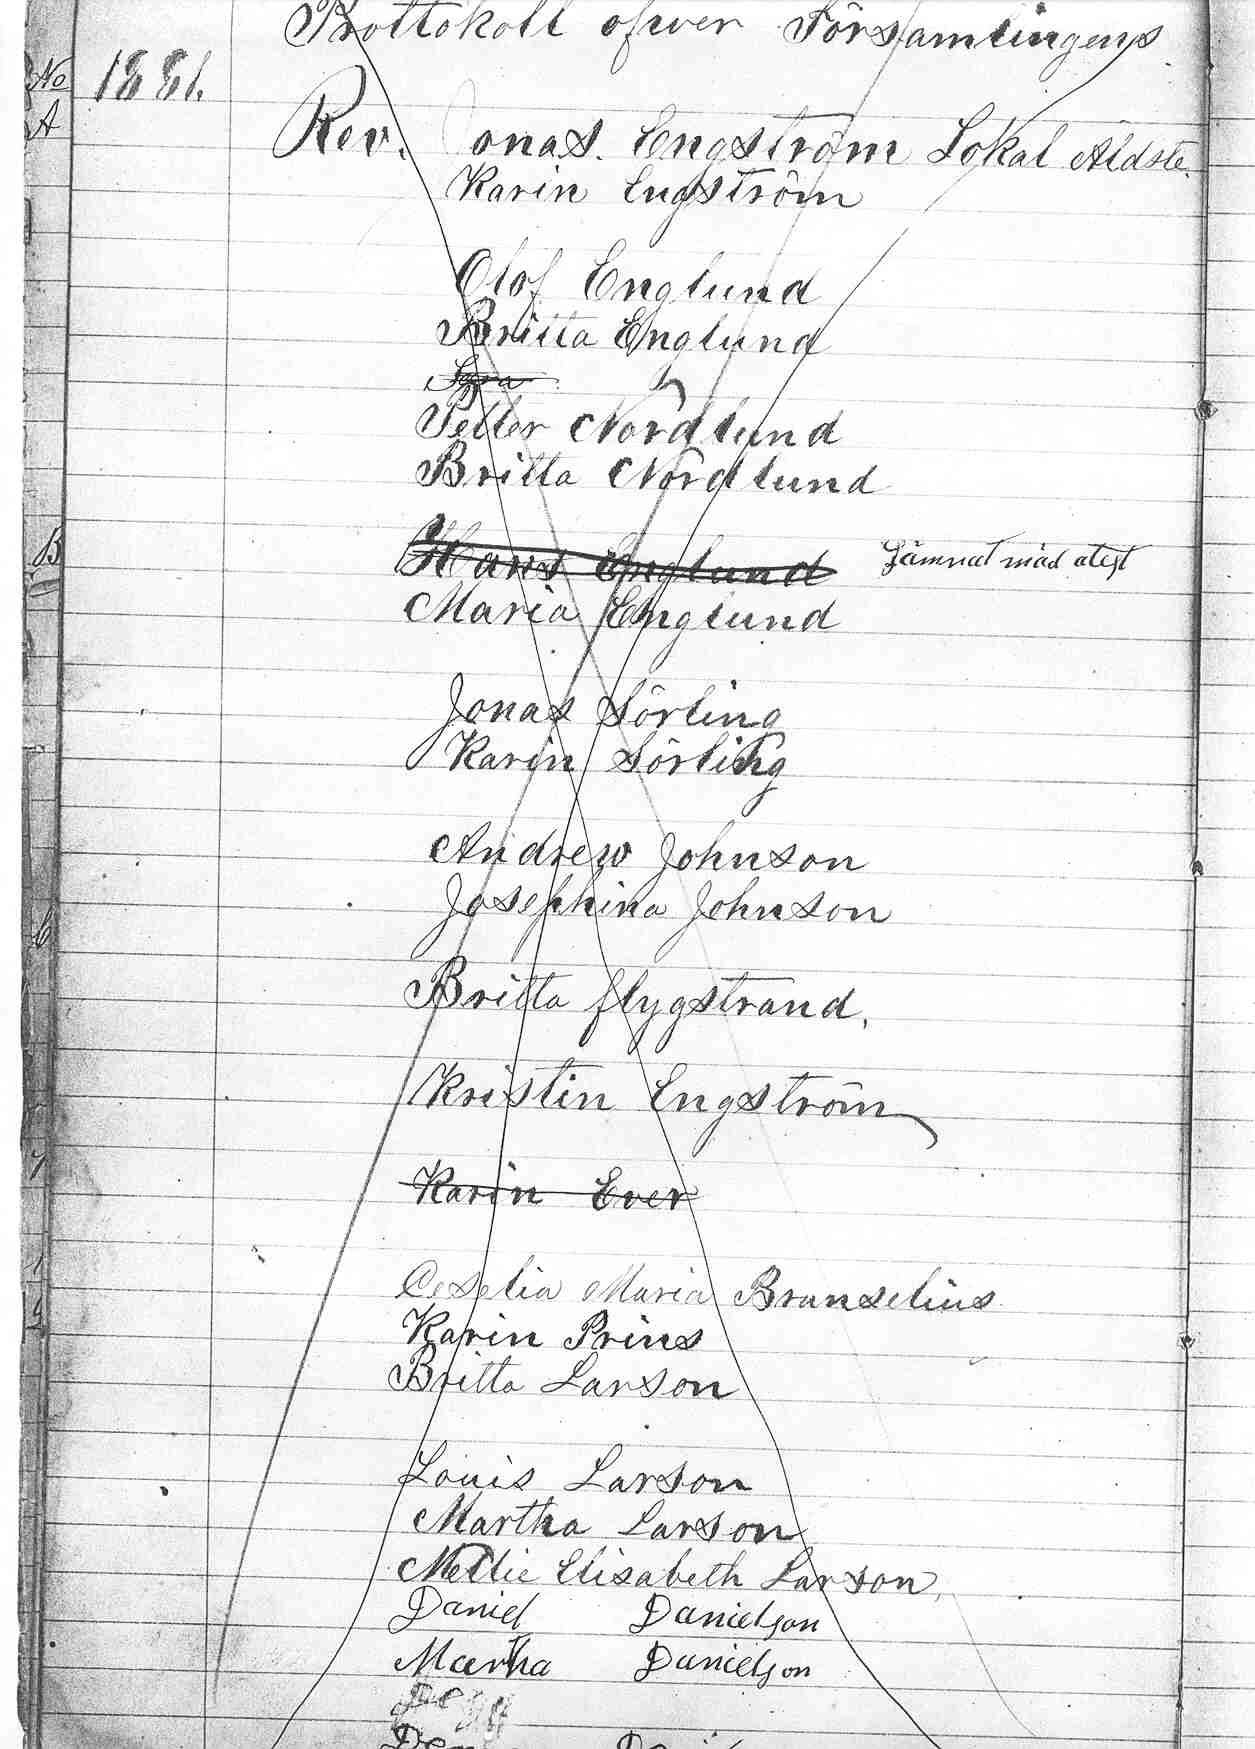 Prottokoll öfwer Församlingens
No 1881.
A
Rev. Jonas. Engström Lokal Äldste.
Karin Engström
Olof Englund
Britta Englund
Sara
Petter Nordlund
Britta Nordlund
B Hans Englund Lämnat mäd atest
Maria Englund
Jonas Sörling
Karin Sörling
Andrew Johnson
Josephina Johnson
Britta flygstrand.
Kristin Engström
Karin Ever
Ceselia Maria Branselius
Karin Prins
Britta Larson
Louis Larson
Martha Larson
Mettie Elisabeth Larson,
Daniel Danielson
Martha Danielson